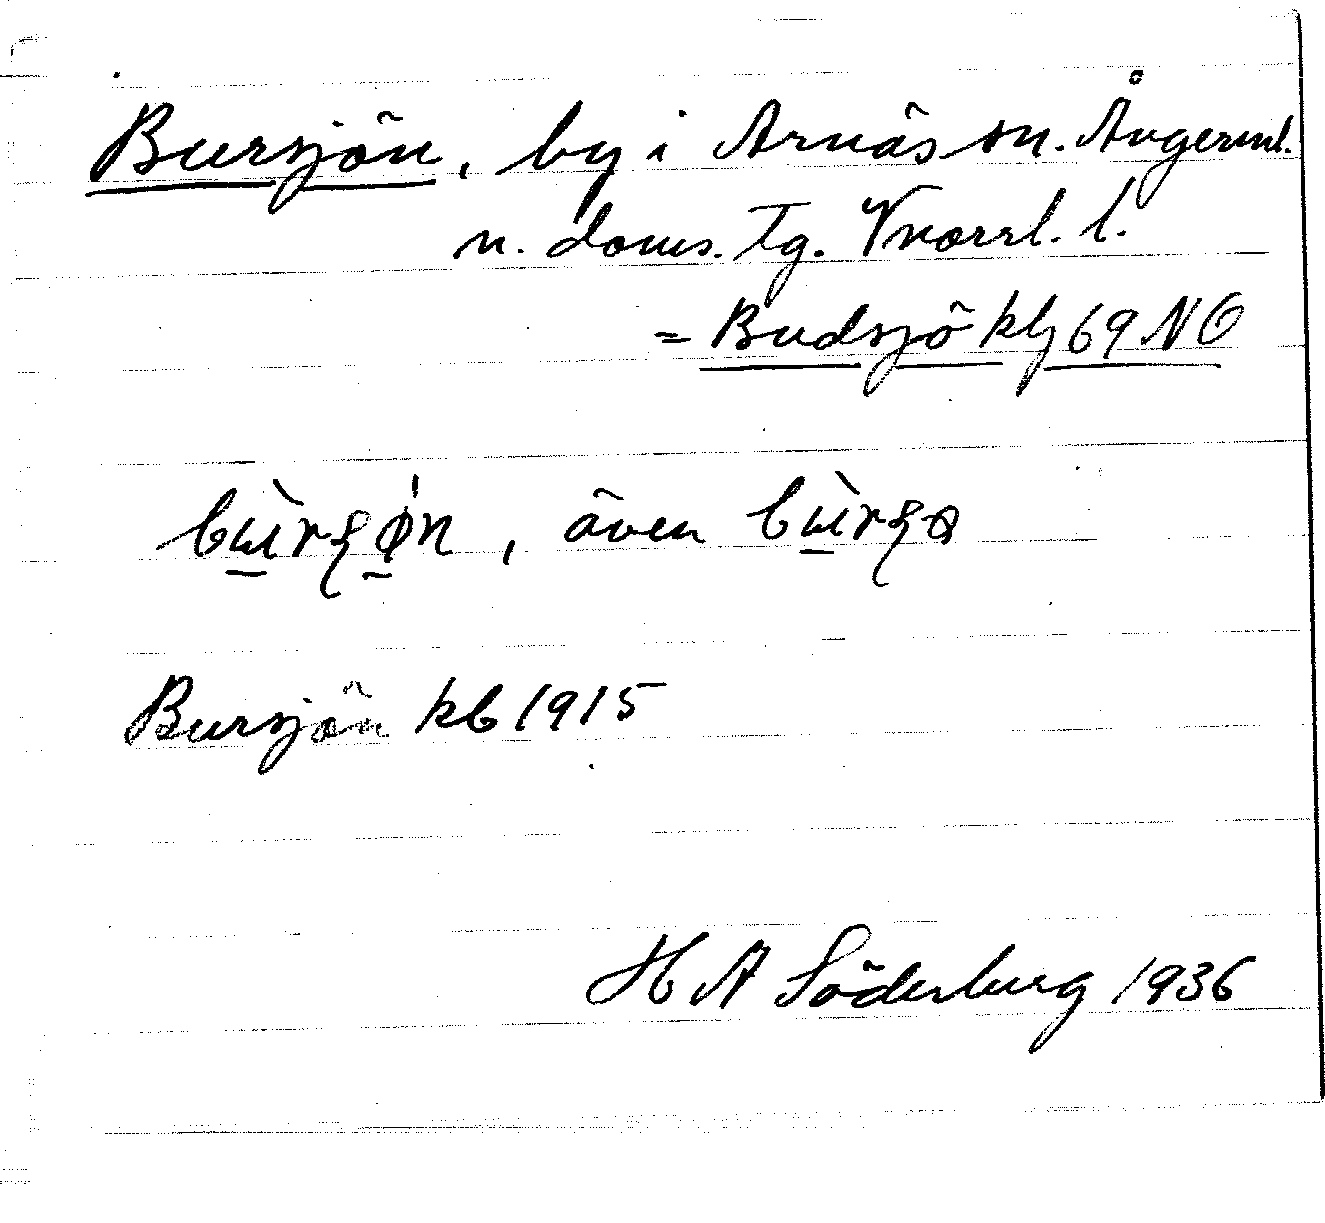 Bursjön, by i Arnäs sn. Ångerml.
n. doms. Tg. Vnorrl. l.
= Budsjö kbl 69 NO
bùrʂøn, även bùrʂa
Bursjön kb 1915
H A Söderberg 1936